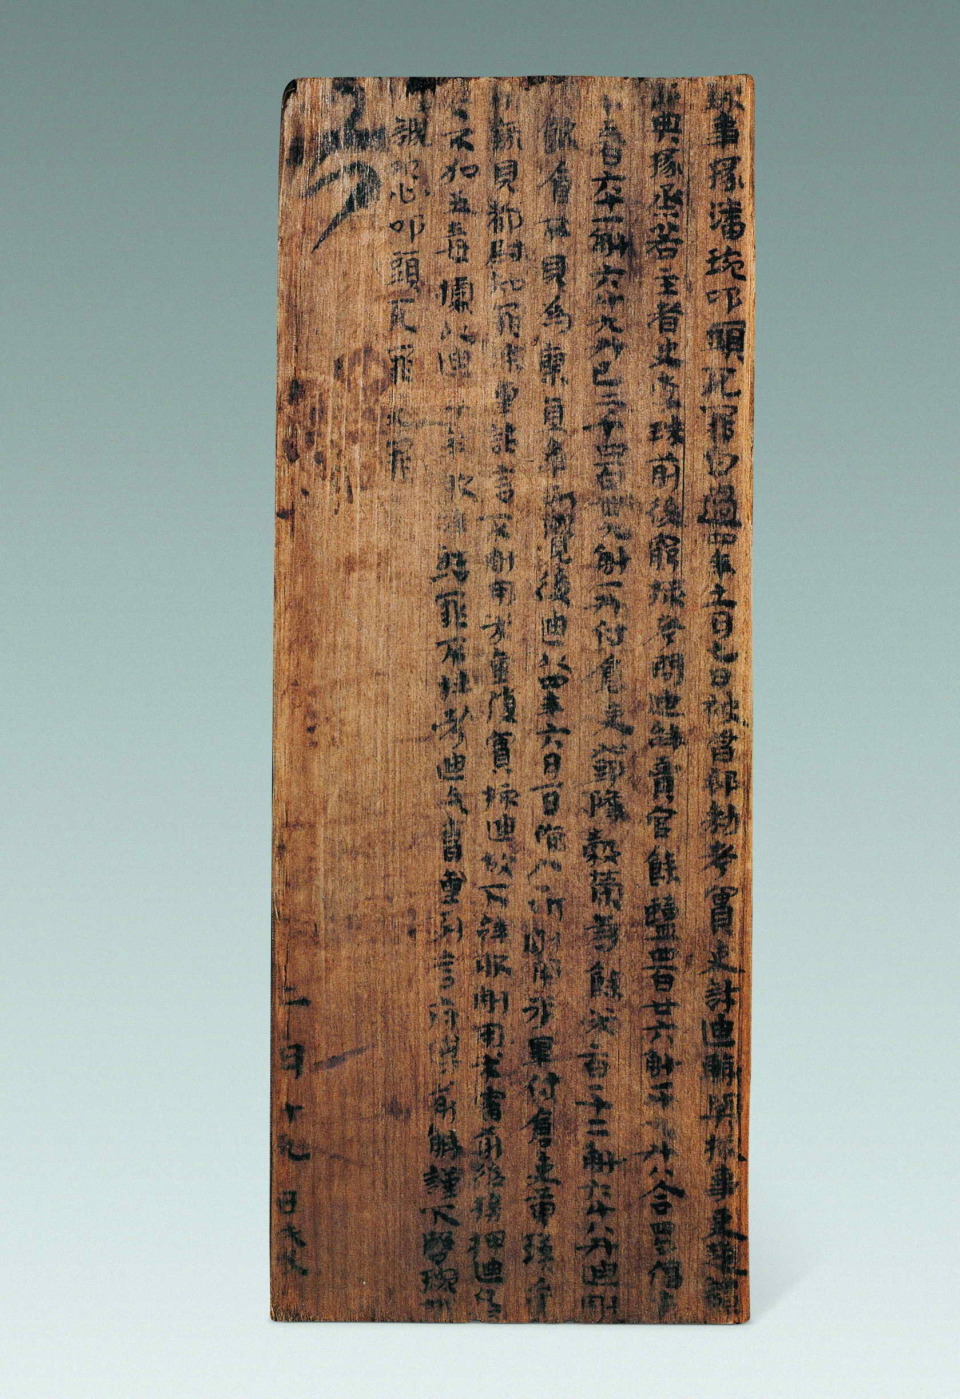 錄事掾潘琬叩頭死罪白過四年十一月七日被督郵敕考實吏許迪輒與核事吏趙譚
部典掾烝若主者史李珠前後窮核考問迪辭賣官餘鹽四百廿六斛一斗九升八合四勺偪米
二千五百六十一斛六斗九升已二千四百卌九斛一升付倉吏鄧隆穀榮等餘米一百一十二斛六斗八升迪割
用飲食不見為廖直事所覺後迪以四年六月一日偷入所割用米畢付倉吏黃瑛受
前錄見都尉知罪深重詣言不割用米重復實核迪故下辭服割用米審前後搒押迪凡百
卅下不加五毒據以迪服辭結罪不枉考迪乞曹重列言府傅前解謹下啟琬誠
惶誠恐叩頭死罪死罪
二月十九日戊戌